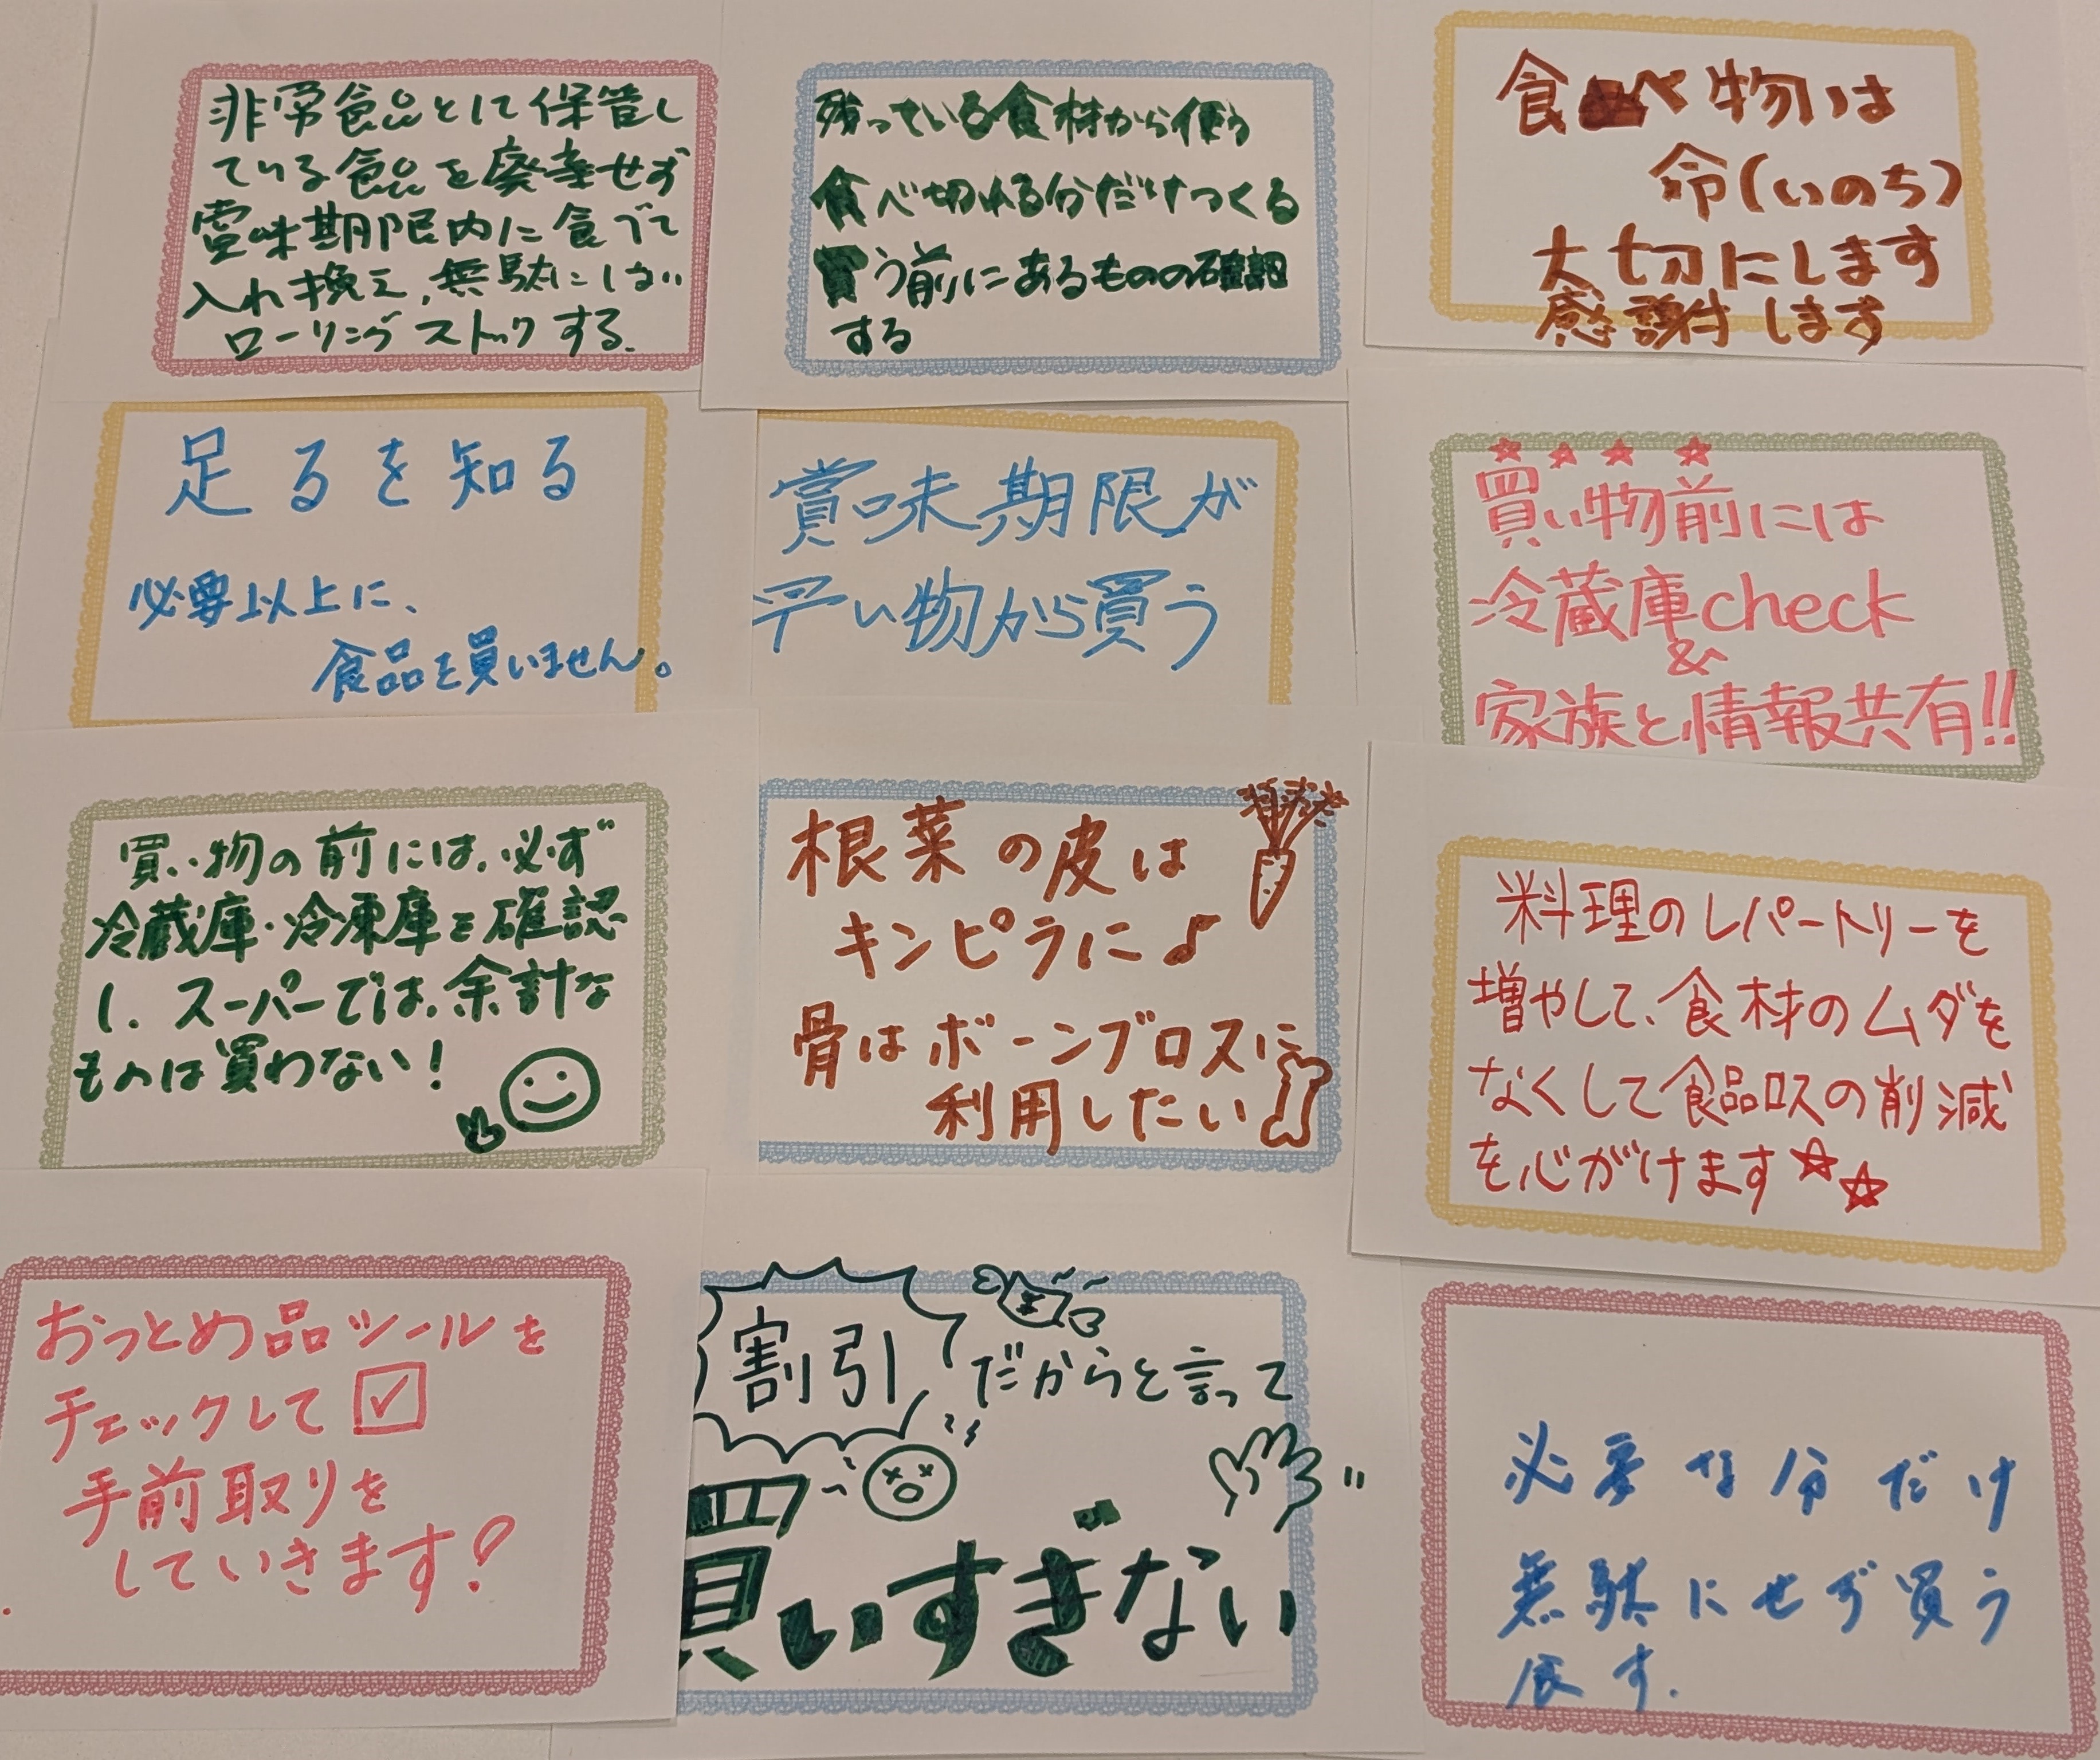 非常食品として保管し
ている食品を廃棄せず
賞味期限内に食べて
入れ換え、無駄にしない
ローリングストックする.
残っている食材から使う
食べ切れる分だけつくる
買う前にあるものの確認
する
食べ物は
命(いのち)
大切にします
感謝します
足るを知る
必要以上に、
食品を買いません。
賞味期限が
早い物から買う
買い物前には
冷蔵庫check
&
家族と情報共有!!
買い物の前には、必ず
冷蔵庫・冷凍庫を確認
し、スーパーでは、余計な
ものは買わない!
根菜の皮は
キンピラに♪
骨はボーンブロスに
利用したい
料理のレパートリーを
増やして、食材のムダを
なくして食品ロスの削減
を心がけます☆☆
おっとめ品シールを
チェックして☑
手前取りを
していきます!
割引だからと言って
買いすぎない
必要な分だけ
無駄にせず買う
す.